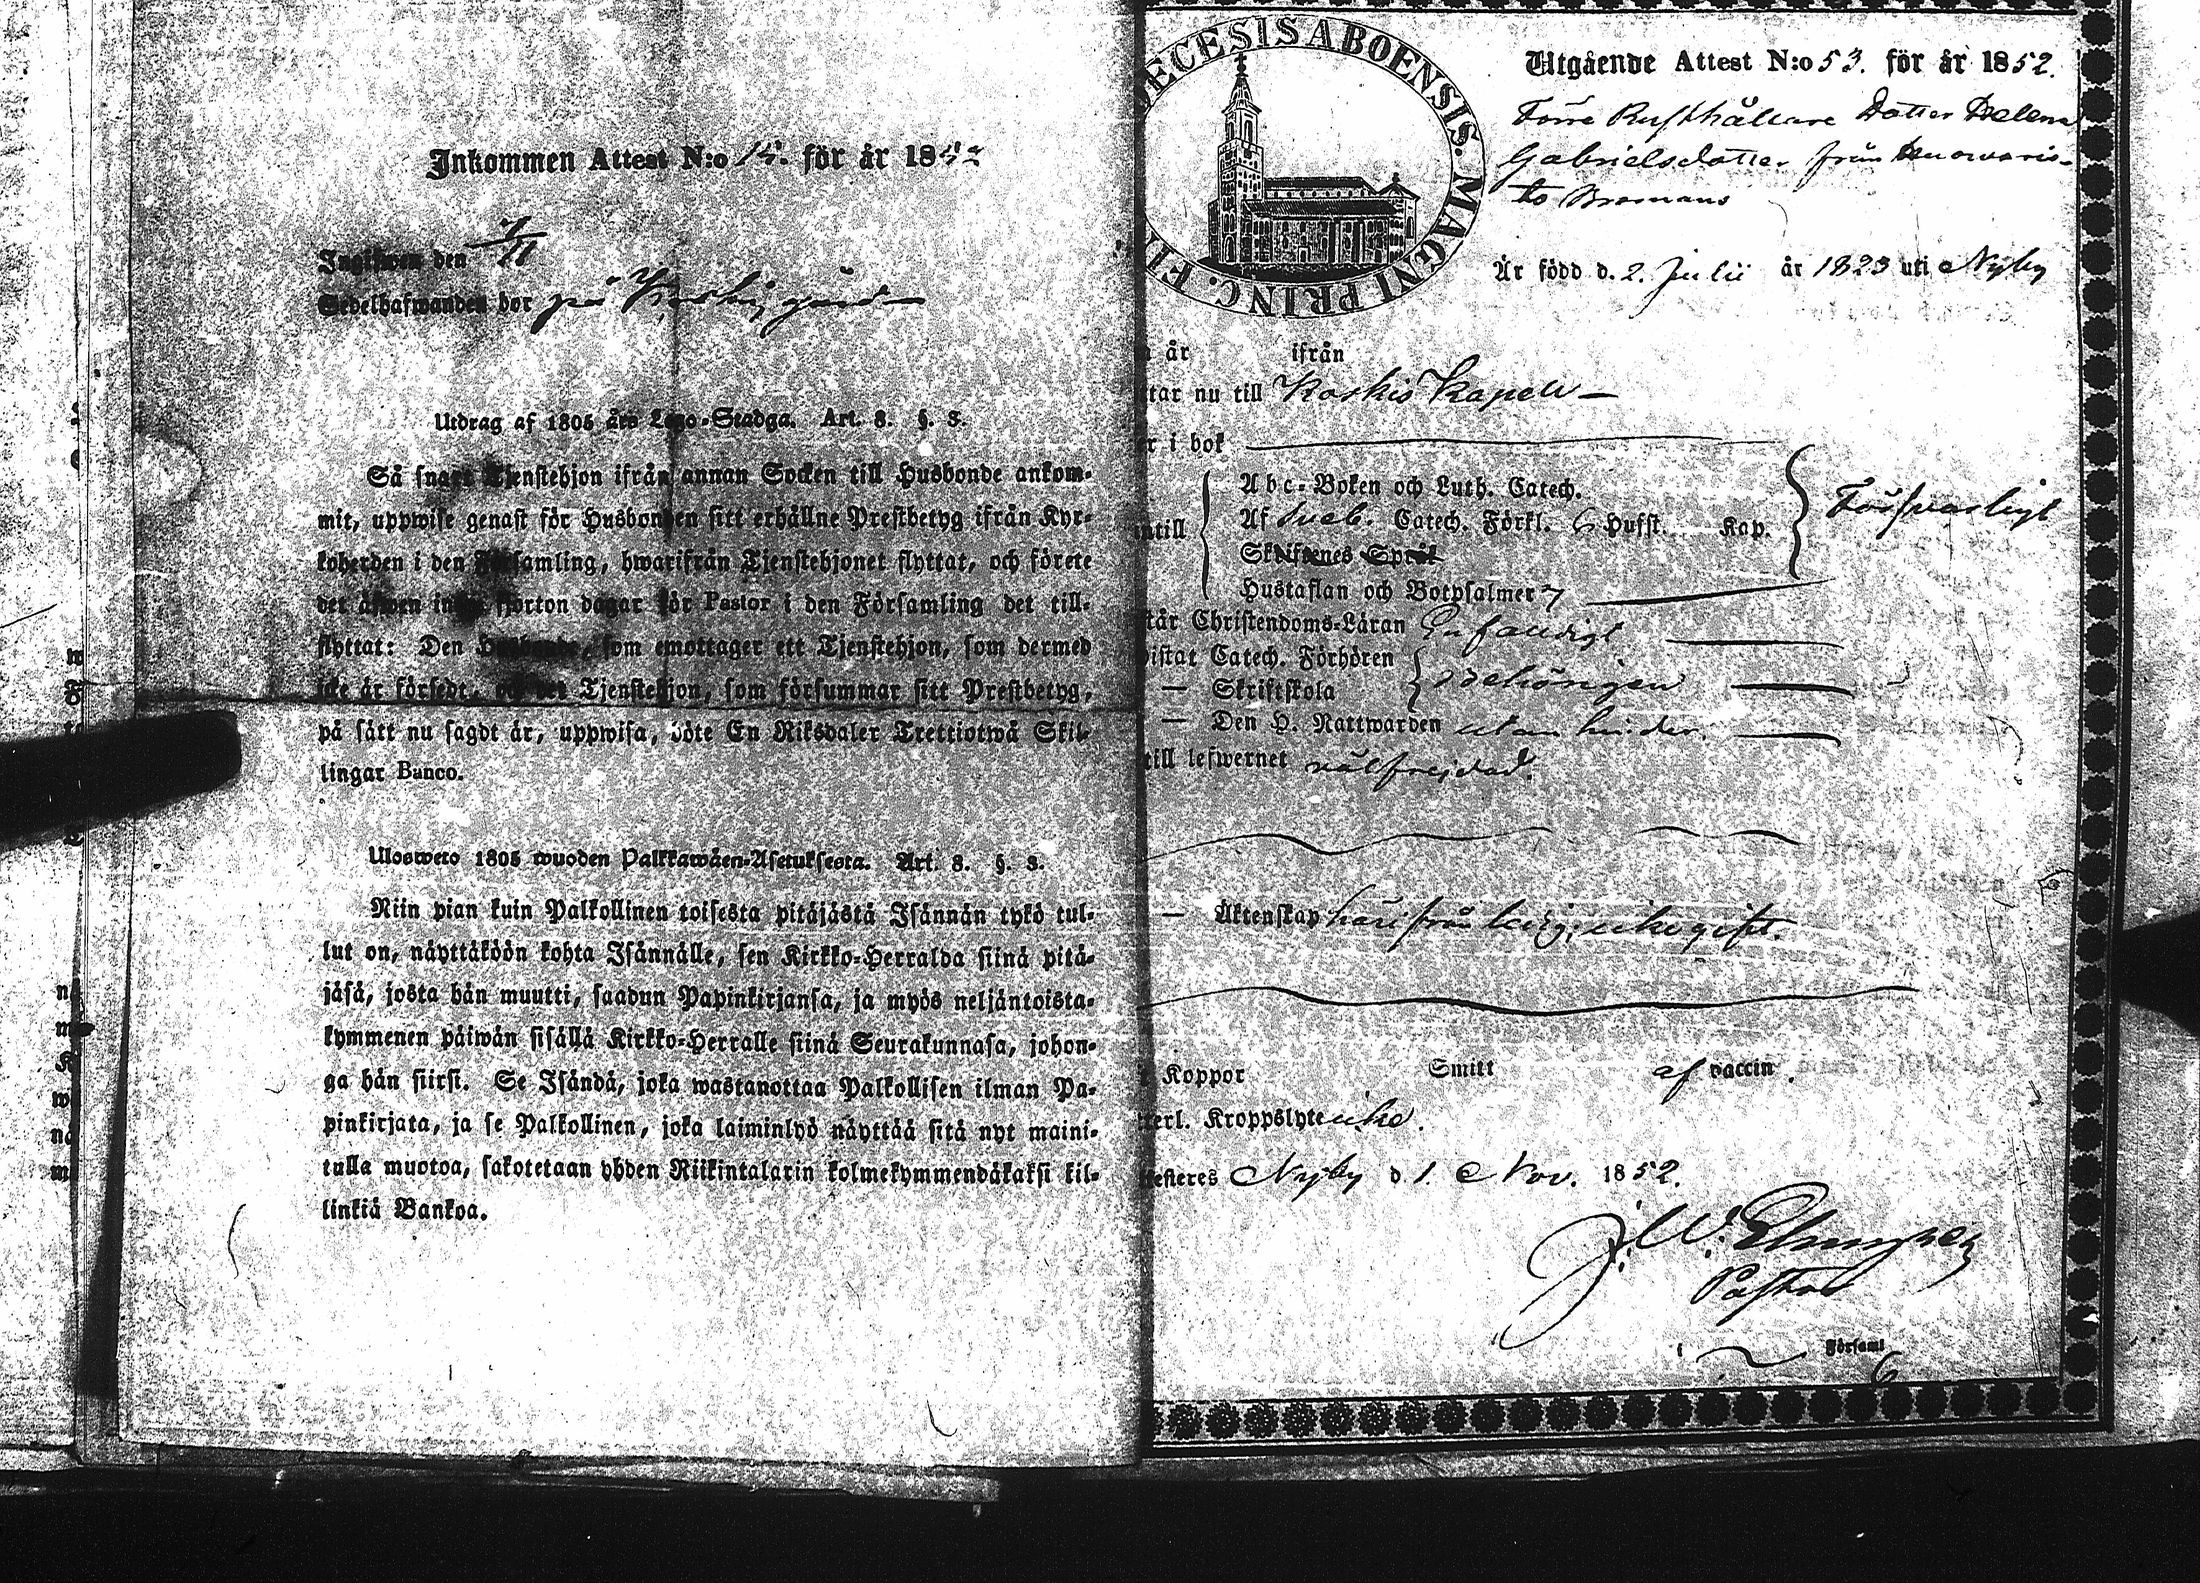 Inkommen Attest N:o 15. för år 1852
Ingifwen den 7/11
Sedelhafwanden bor på Koskis gård
Utdrag af 1805 års Lego-Stadga. Art. 8. §. 3.
Så snart Tjenstehjon ifrån annan Socken till Husbonde ankom-
mit, uppwise genast för Husbonden sitt erhållne Prestbetyg ifrån Kyr-
koherden i den Församling, hwarifrån Tjenstehjonet flyttat, och förete
det äfwen inom fjorton dagar för Pastor i den Församling det till-
flyttat: Den Husbonde, som emottager ett Tjenstehjon, som dermed
icke är försedt, och det Tjenstehjon, som försummar sitt Prestbetyg,
på sätt nu sagdt är, uppwisa, böte En Riksdaler Trettiotwå Skil-
lingar Banco.
Ulosweto 1805 wuoden Palkkawäen-Asetuksesta. Art. 8. §. 3.
Niin pian kuin Palkollinen toisesta pitäjästä Isännän tykö tul-
lut on, näyttäköön kohta Isännälle, sen Kirkko-Herralda siinä pitä-
jäsä, josta hän muutti, saadun Papinkirjansa, ja myös neljäntoista-
kymmenen päiwän sisällä Kirkko-Herralle siinä Seurakunnasa, johon-
ga hän siirsi. Se Isändä, joka wastanottaa Palkollisen ilman Pa-
pinkirjata, ja se Palkollinen, joka laiminlyö näyttää sitä nyt maini-
tulla muotoa, sakotetaan yhden Riikintalarin kolmekymmendäkaksi kil-
linkiä Bankoa.
ECESIS ABOENSIS. MAGNI PRINC. FI
Utgående Attest N:o 53. för år 1852.
Förre Rusthållare Dotter Helena
Gabrielsdotter från
to Bromans
Är född d. 2. Julii år 1823 uti Nyby
år ifrån
tar nu till Koskis Kapell
r i bok
ntill
Abc-Boken och Luth. Catech.
Af Sveb. Catech. Förkl. 6 Hufst. Kap.
Skriftenes Språk
Hustaflan och Botpsalmer 7
Försvarligt
står Christendoms-Läran Enfaldigt
istat Catech. Förhören
— Skriftskola
behörigen
— Den H. Nattwarden utan hinder.
till lefwernet välfrejdad.
— Äktenskap härifrån ledig; icke gift.
Koppor Smitt af vaccin.
terl. Kroppslyte icke.
testeres Nyby d 1. Nov. 1852.
J. W.
Pastor
i Församl
6